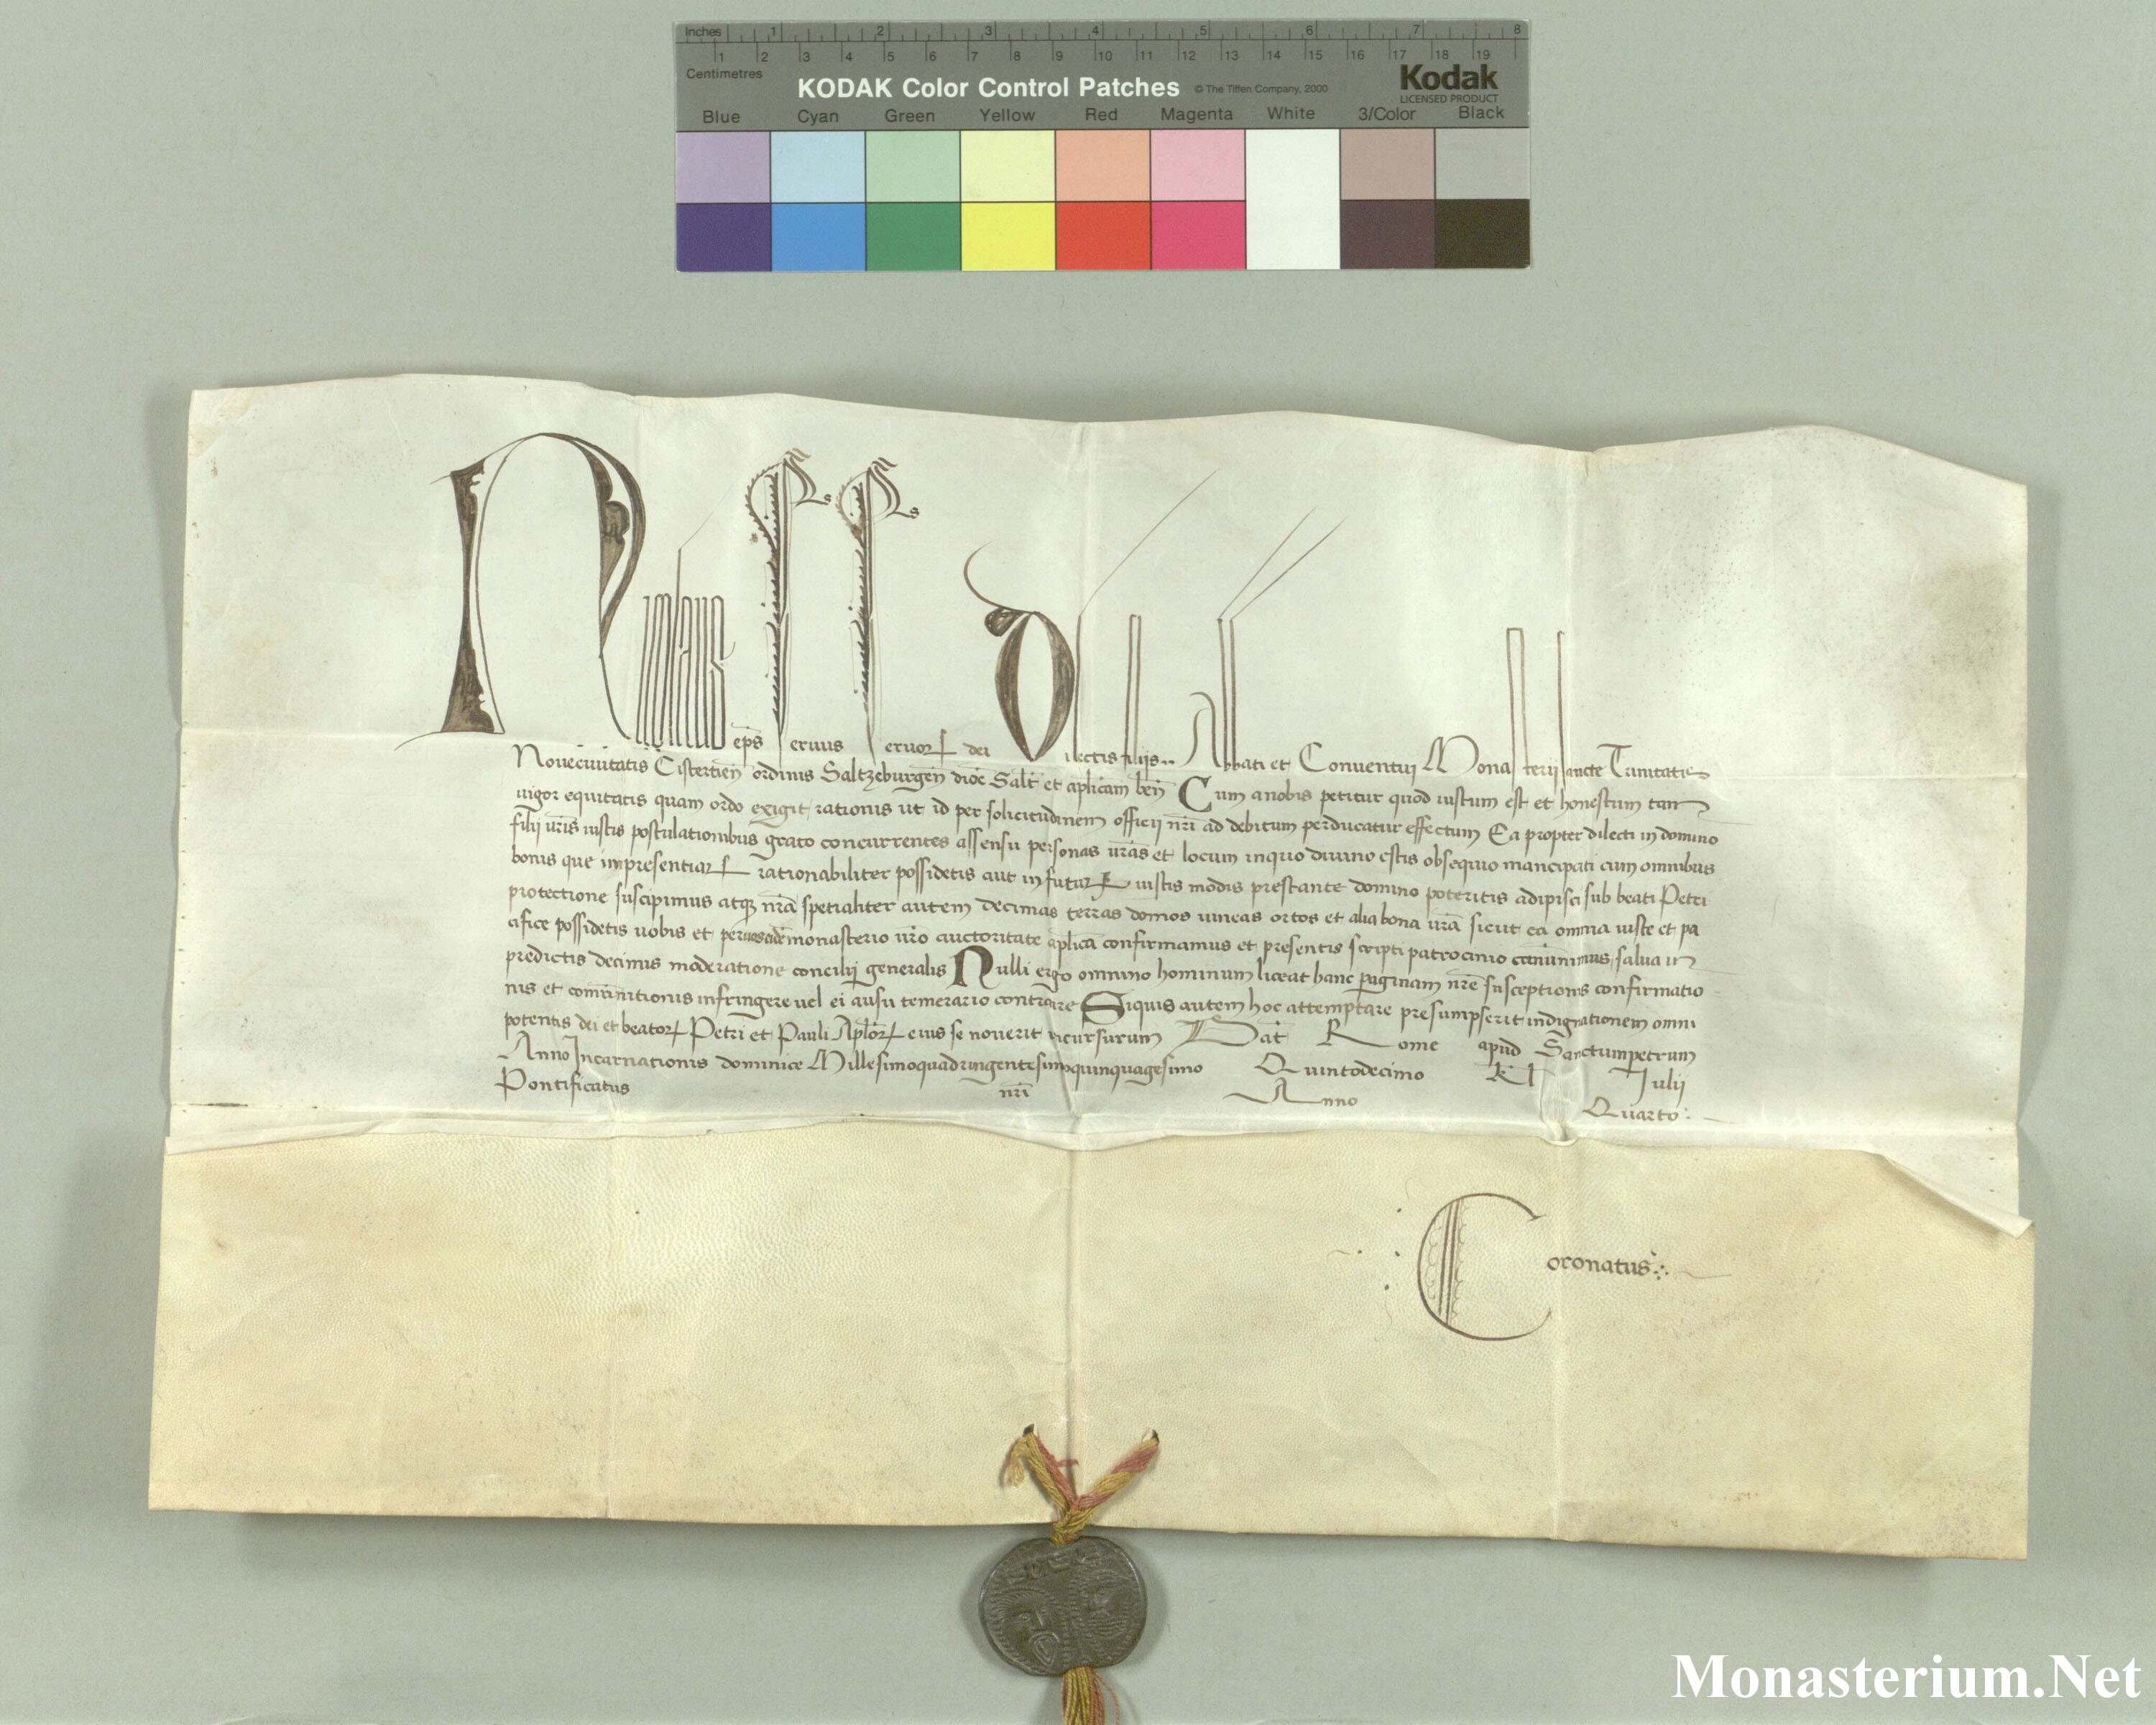 Inches 1 2 3 4 5 6 7 8
1 2 3 4 5 6 7 8 9 10 11 12 13 14 15 16 17 18 19
Centimetres
KODAK Color Control Patches © The Tiffen Company, 2000 Kodak
LICENSED PRODUCT
Blue Cyan Green Yellow Red Magenta White 3/Color Black
Nicolaus eps servus servoꝝ dei Dilectis filijs .. Abbati et Conventui Monasterii sancte Trinitatis
Novecivitatis Cistercien ordinis Saltzeburgen dioc Salt et aplicam ben Cum a nobis petitur quod iustum est et honestum tam
vigor equitatis quam ordo exigit rationis ut id per solicitudinem officij nri ad debitum perducatur effectum Ea propter dilecti in domino
filij vris iustis postulationibus grato concurrentes assensu personas vras et locum in quo divino estis obsequio mancipati cum omnibus
bonis que impresentiaꝝ rationabiliter possidetis aut in futuꝝ iustis modis prestante domino poteritis adipisci sub beati Petri
protectione suscipimus atqꝫ nra spetialiter autem decimas terras domos vineas ortos et alia bona vra sicut ea omnia iuste et pa
cifice possidetis vobis et per vos eidem monasterio vro auctoritate aplica confirmamus et presentis scripti patrocinio communimus salva in
predictis decimis moderatione concilij generalis Nulli ergo omnino hominum liceat hanc paginam nre susceptionis confirmatio
nis et comunitionis infringere vel ei ausu temerario contraire Siquis autem hoc attemptare presumpserit indignationem omni
potentis dei et beatoꝝ Petri et Pauli Aploꝝ eius se noverit incursurum Dat Rome apud Sanctumpetrum
Anno Incarnationis dominice Millesimoquadringentesimoquinquagesimo Quintodecimo kl Julij
Pontificatus nri Anno Quarto :
Coronatus
Monasterium.Net